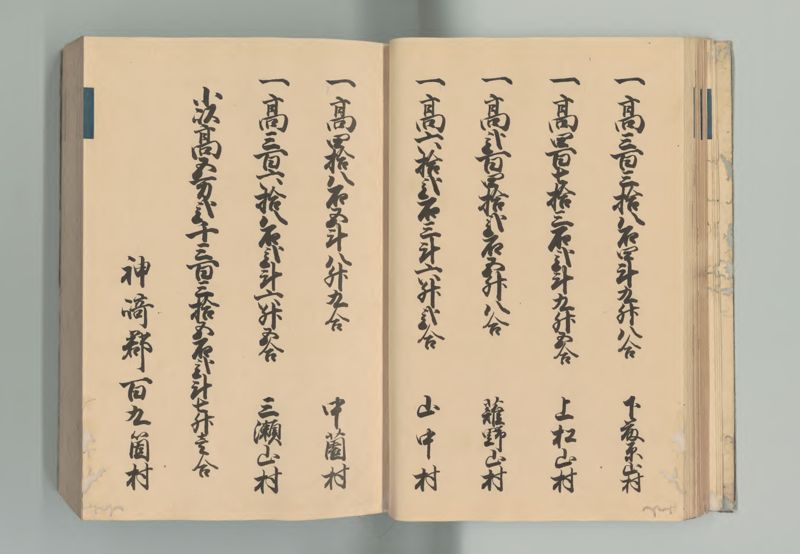 一高三百三拾八石四斗九升八合 下萩原山村
一高四百七拾三石弐斗九升五合 上松山村
一高弐百四拾弐石五升八合 蘿野山村
一高六拾弐石三斗六升弐合 山中村
一高四拾八石五斗八升九合 中菌村
一高三百六拾八石弐斗六升五合 三瀬山村
小以高五万弐千三百三拾五石弐斗七升壱合
神崎郡百九箇村